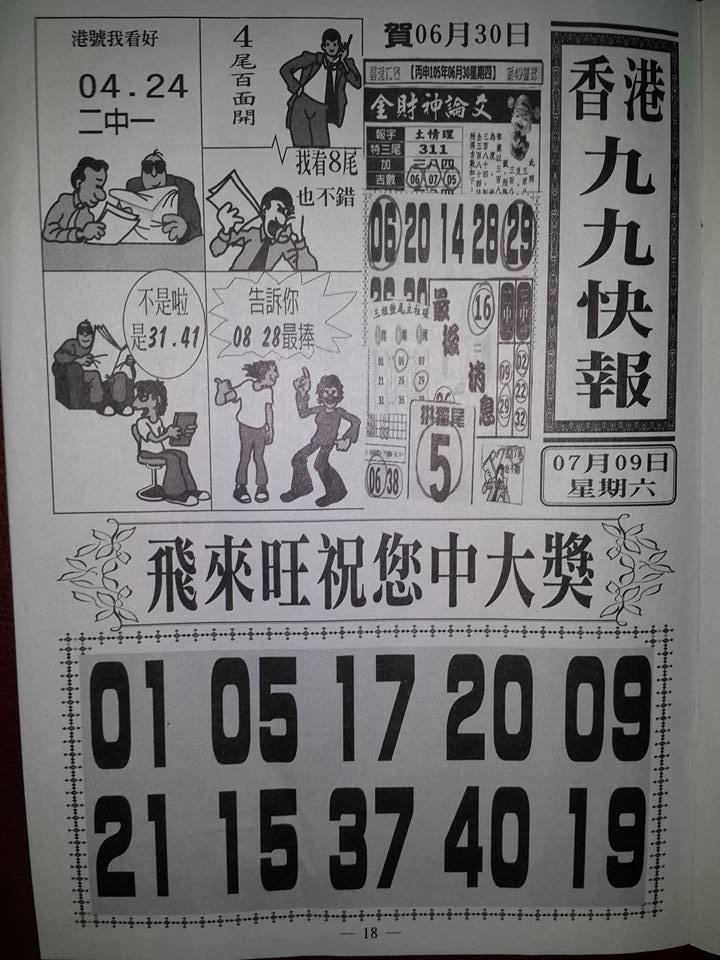 港號我看好
04.24
二中一
4尾百面開
我看8尾
也不錯
不是啦
是31.41
告訴你
08 28最捧
賀06月30日
【丙申105年06月30星期四】
金財神論文
報字 土情理
特三尾 311
加 三八四
吉數 06 07 05
06 20 14 28 29
最後消息
16
09
29
02
22
32
06 38
5
香港
九九快報
07月09日
星期六
飛來旺祝您中大獎
01 05 17 20 09
21 15 37 40 19
— 18 —